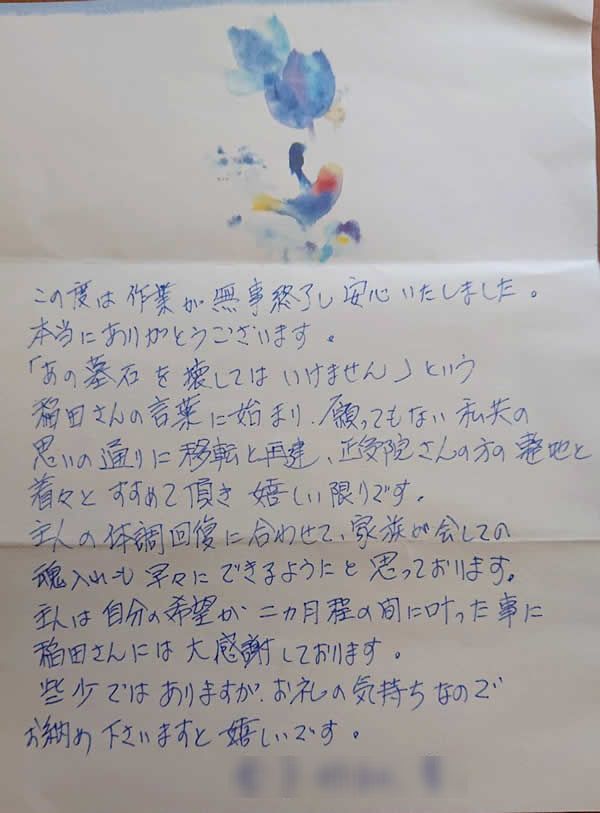 この度は作業が無事終了し安心いたしました。
本当にありがとうございます。
「あの墓石を壊してはいけません」という
稲田さんの言葉に始まり、願ってもない私共の
思いの通りに移転と再建、正受院さんの方の墓地と
着々とすすめて頂き嬉しい限りです。
主人の体調回復に合わせて、家族が会しての
魂入れも早々にできるようにと思っております。
主人は自分の希望が二カ月程の間に叶った事に
稲田さんには大感謝しております。
些少ではありますが、お礼の気持ちなので
お納め下さいますと嬉しいです。